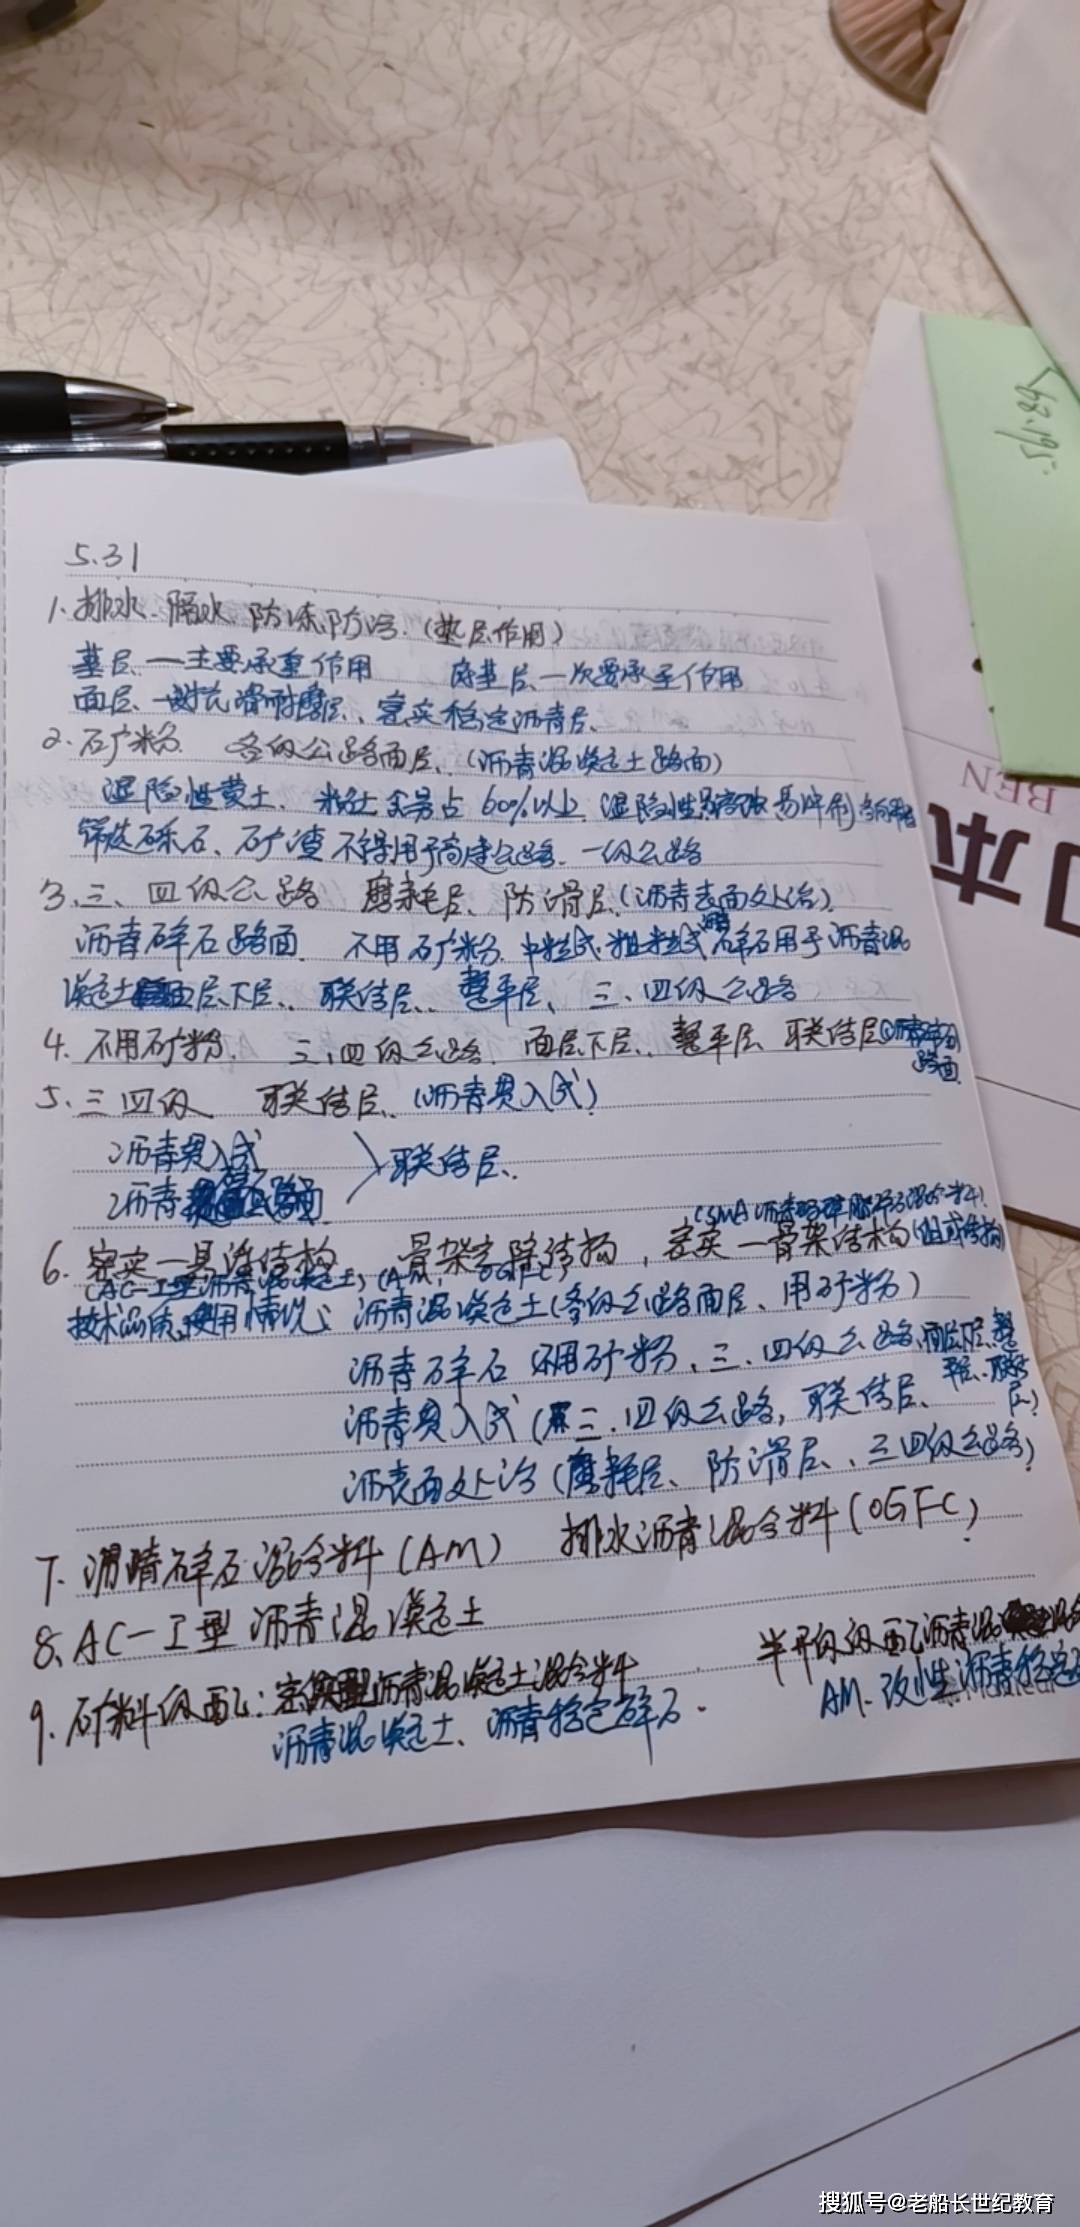 68.195.
BEN
本
5.31
1. 排水、隔水、防冻、防污.（垫层作用）
基层 — 主要承重作用 底基层 — 次要承重作用
面层 — 抗滑耐磨层、密实稳定沥青层.
2. 矿粉 各级公路面层.（沥青混凝土路面）
湿陷性黄土、粉土 含量占60%以上 湿陷性 易冲刷
砾石、矿渣不得用于高速公路、一级公路
3. 三、四级公路 磨耗层、防滑层.（沥青表面处治）.
沥青碎石路面 不用矿粉. 中粒式、粗粒式 碎石用于沥青混
凝土 面层下层、联结层、整平层、三、四级公路
4. 不用矿粉. 三、四级公路. 面层下层、整平层 联结层（沥青碎石
路面
5. 三四级 联结层、（沥青贯入式）
沥青贯入式
沥青 路面
联结层.
（SMA 沥青玛蹄脂碎石混合料）
6. 密实—悬浮结构 骨架空隙结构，密实—骨架结构（组成结构）
（AC—I型沥青混凝土）（AM、OGFC）
技术品质、使用情况： 沥青混凝土（各级公路面层、用矿粉）
沥青碎石 不用矿粉、三、四级公路、面层下层、整
平层、联结
层）
沥青贯入式（三、四级公路，联结层、
沥表面处治（磨耗层、防滑层、三四级公路）
7. 沥青碎石混合料（AM） 排水沥青混合料（OGFC）
8. AC—I型沥青混凝土
9. 矿料级配： 沥青混凝土混合料 半开级级配沥青混
沥青混凝土、沥青稳定碎石. AM、改性沥青稳定
搜狐号@老船长世纪教育